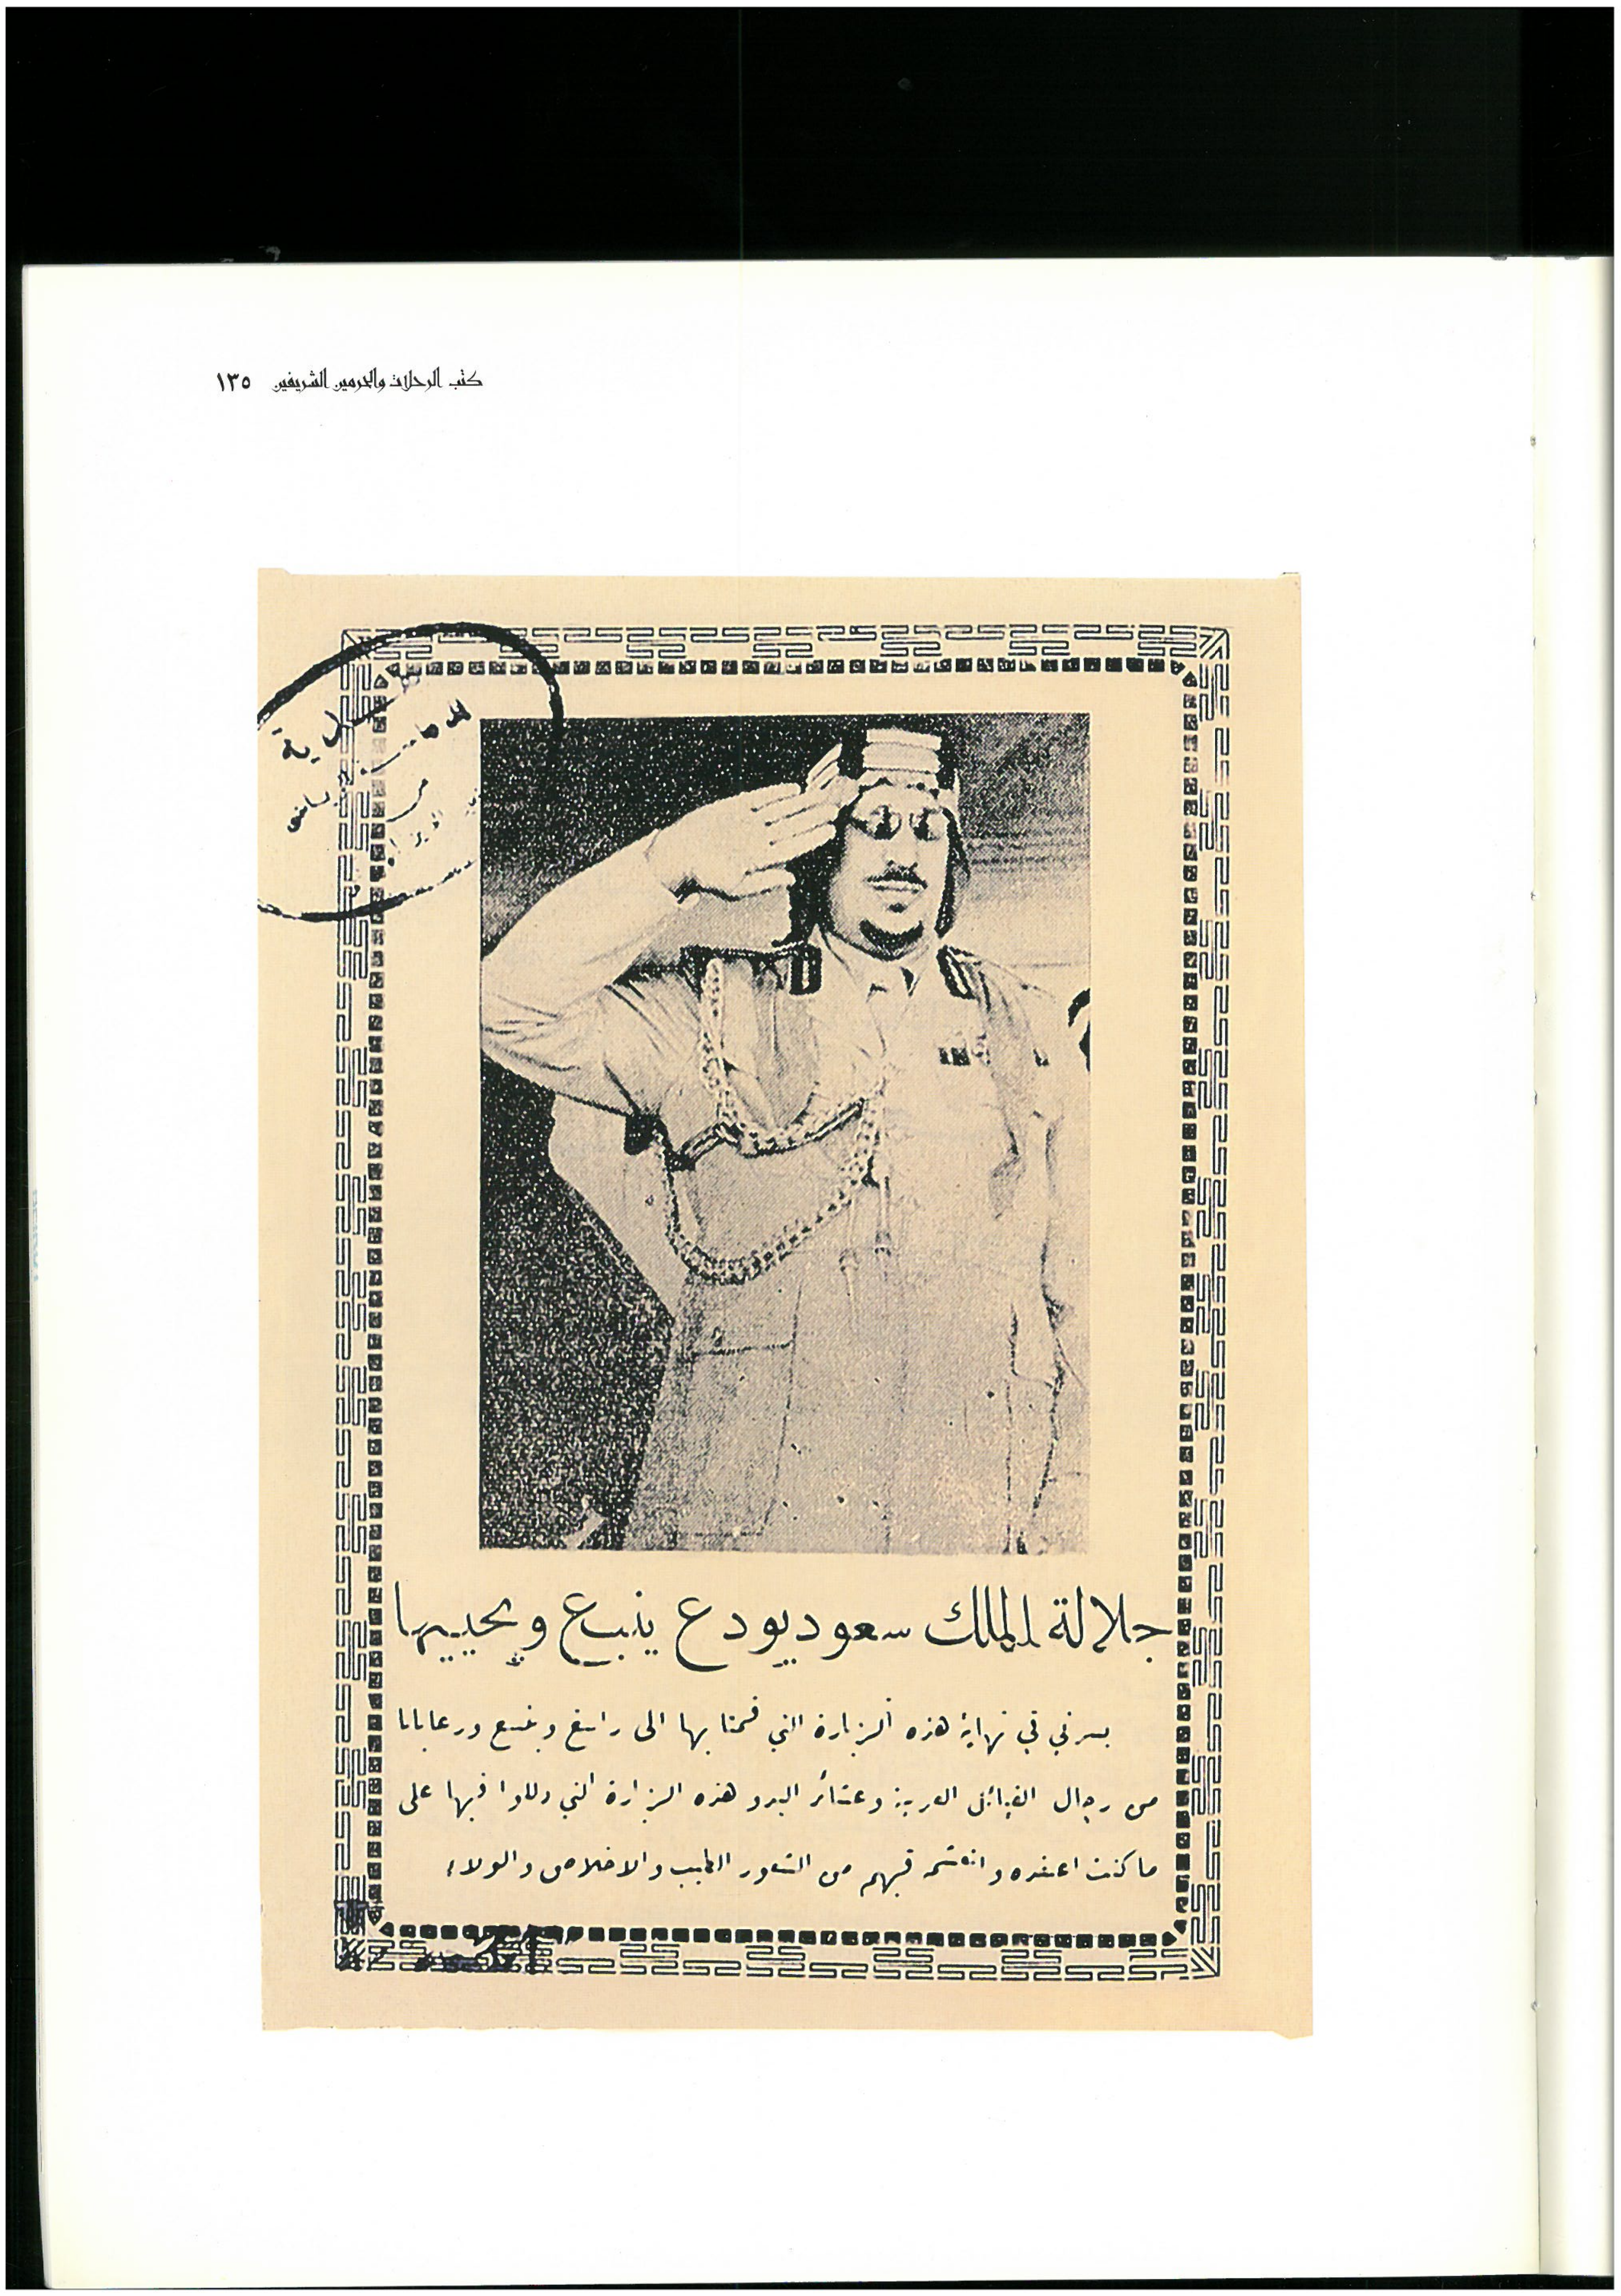 كتب الرحلات والحرمين الشريفين ١٣٥
جلالة الملك سعود يودع ينبع ويحييها
يسرني في نهاية هذه الزيارة التي قمنا بها الى رابغ وينبع ورعايانا
من رجال القبائل العربية وعشائر البدو هذه الزيارة التي دللوا فيها على
ما كنت اعتقده فيهم من الشعور الطيب والاخلاص والولاء